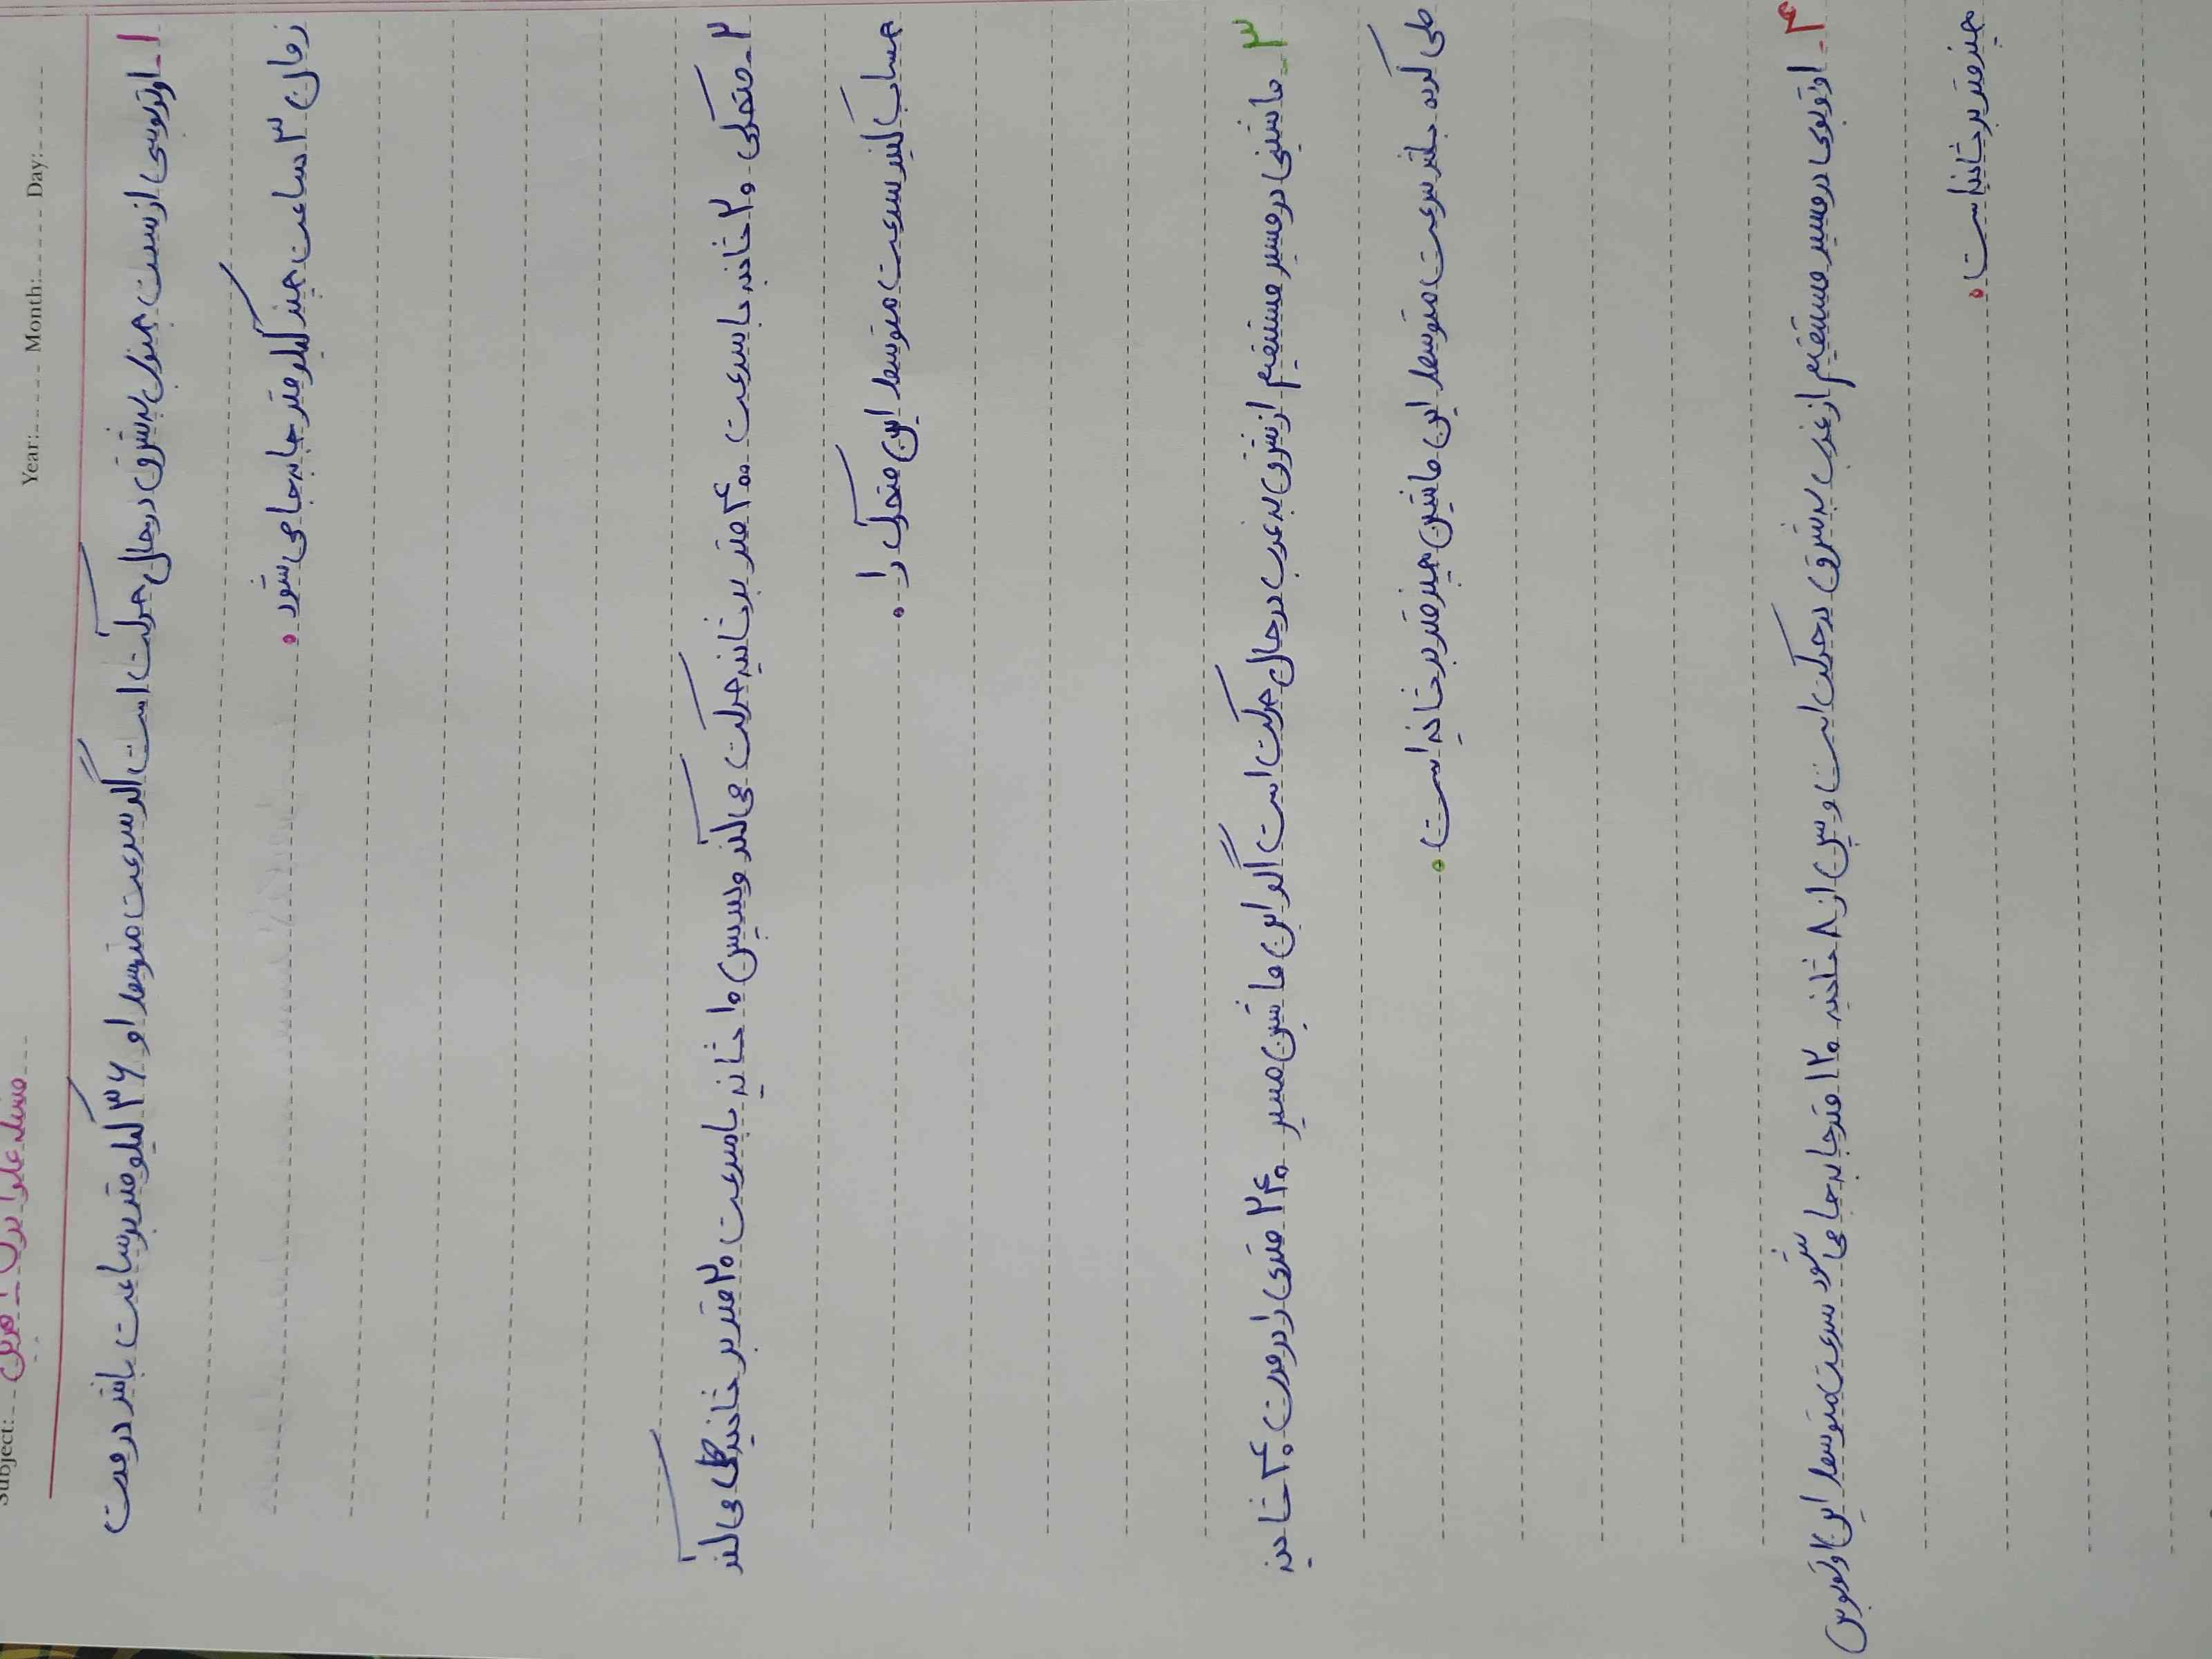 Subject: مسئله علوا برای آ هربی
Year: Month: Day:
۱_ اوتوبوسی از سمت جنوب به شرق در حال حرکت است اگر سرعت متوسط او ۳۶ کیلو متر بر ساعت باشد در مدت
زمان ۳ ساعت چند کیلو متر جا به جا می شود .
۲_ متحرکی ۲۰ ثانیه با سرعت ۴۰۰ متر بر ثانیه حرکت می کند و سپس ۱۰ ثانیه با سرعت ۲۰ متر بر ثانیه طی می کند
حساب کنید سرعت متوسط این متحرک را .
۳_ ماشینی در مسیر مستقیم از شرق به غرب در حال حرکت است اگر این ماشین مسیر ۲۴۰ متری را در مدت ۴۰ ثانیه
طی کرده باشد سرعت متوسط این ماشین چند متر بر ثانیه است .
۴_ اوتوبوی در مسیر مستقیم از غرب به شرق در حرکت است و پس از ۸ ثانیه ۱۲۰ متر جا به جا می شود سرعت متوسط این اوتوبوس
چند متر بر ثانیه است .